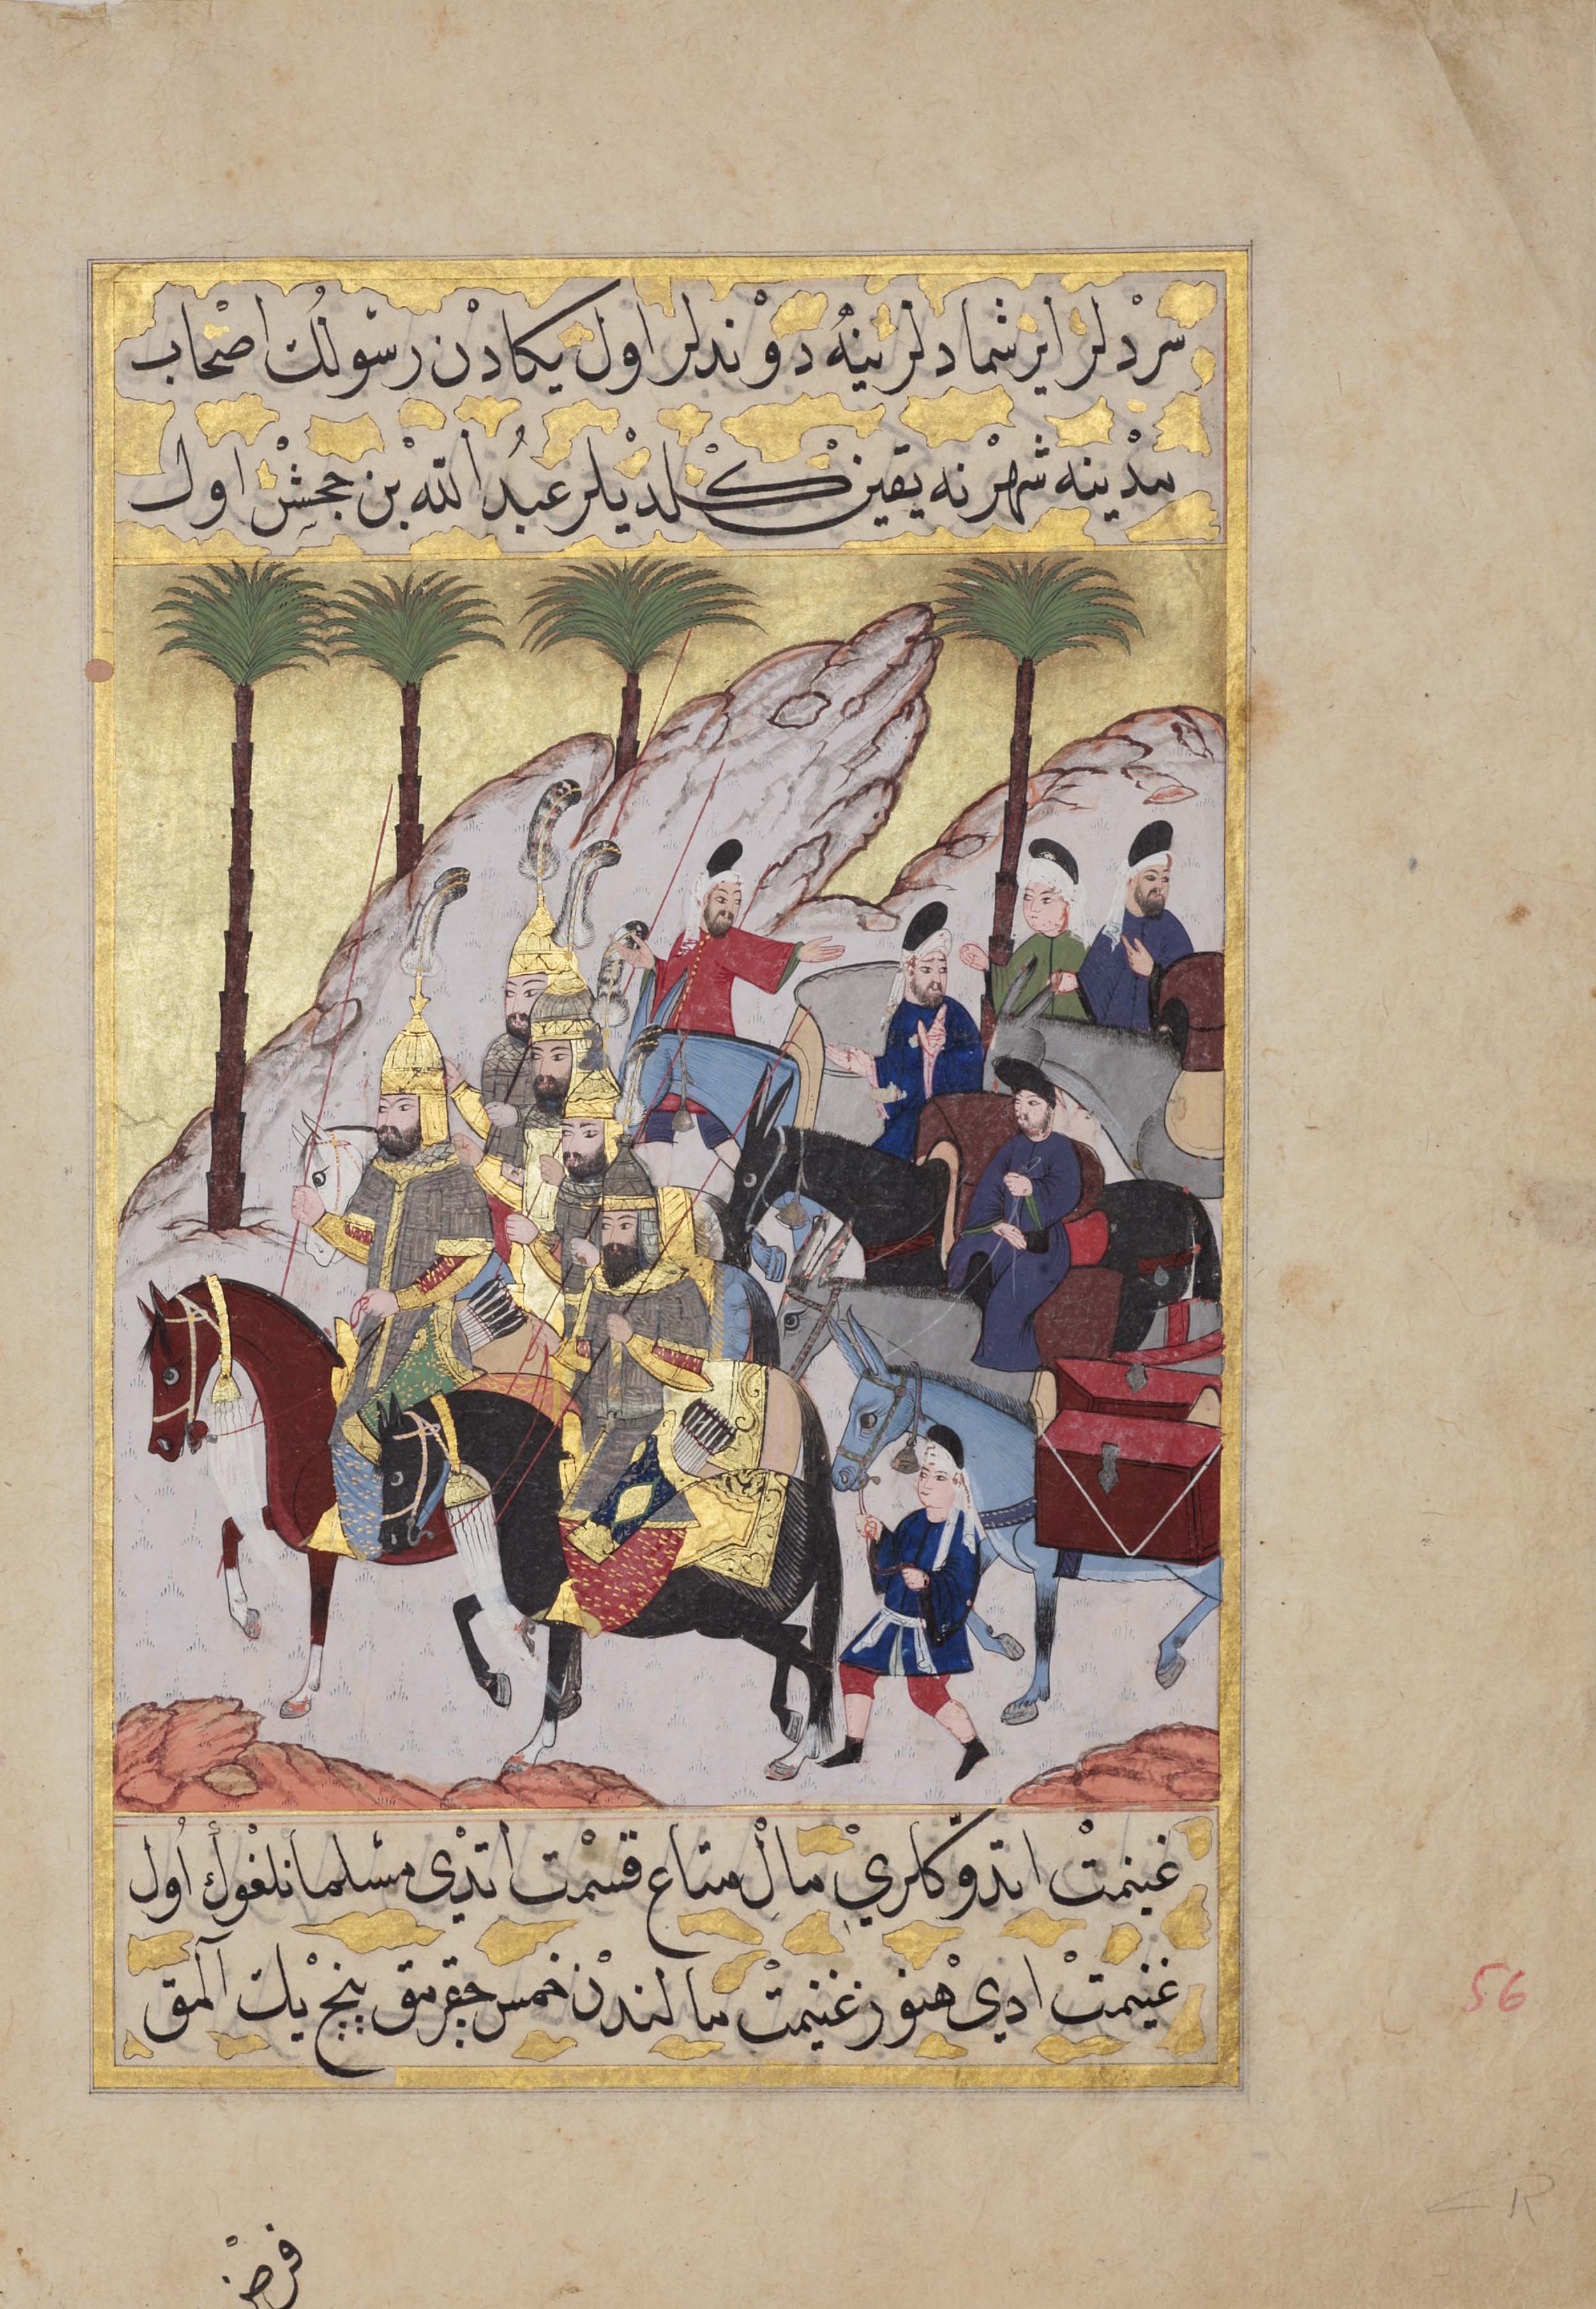 سردلر ايرشمادلر ينه دوندلر اول يكادن رسولك اصحاب
مدينه شهرنه يقين كلديلر عبد الله بن جحش اول
غنيمت اتدوكلري مال متاع قسمت اتدى مسلمانلغوك اول
غنيمت ادي هنوز غنيمت مالندن خمس چقرمق پنچ يك آلمق
فرض
56